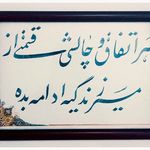 هر اتفاق و چالشی قسمتی از
مسیر زندگیه ادامه بده